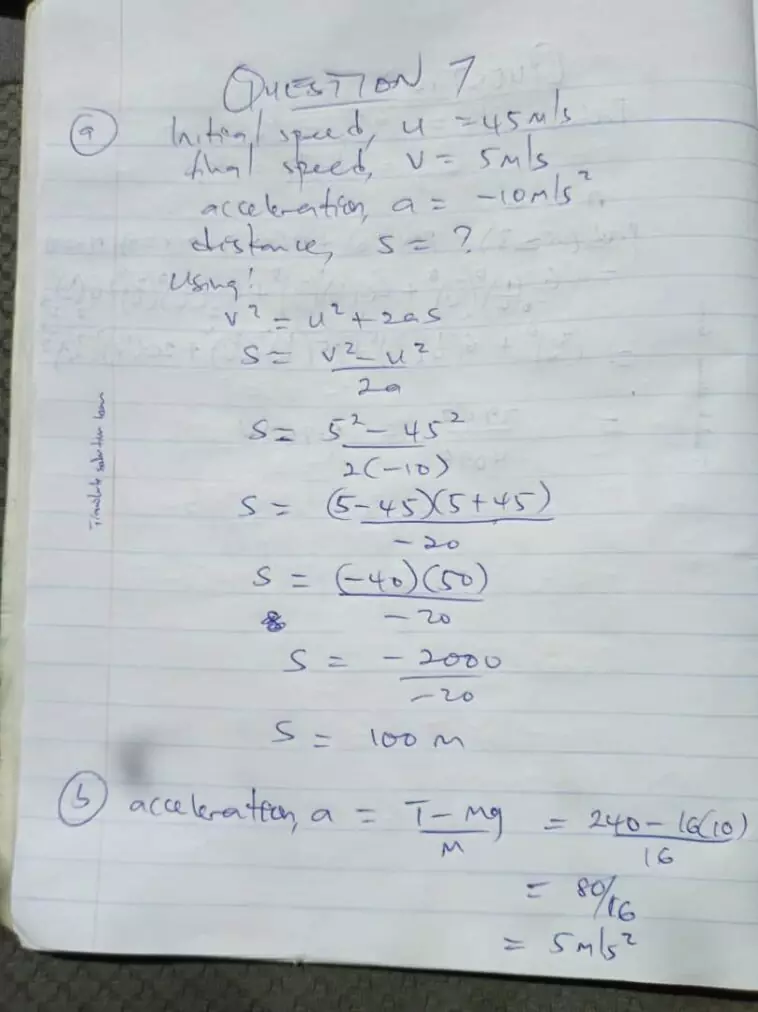 QUESTION 7
(a) Initial speed, u = 45m/s
final speed, v = 5m/s
acceleration, a = -10m/s²
distance, s = ?
Using:
v² = u² + 2as
s = v² - u² / 2a
s = 5² - 45² / 2(-10)
s = (5-45)(5+45) / -20
s = (-40)(50) / -20
s = -2000 / -20
s = 100m
(b) acceleration, a = T - mg / m = 240 - 16(10) / 16
= 80/16
= 5m/s²